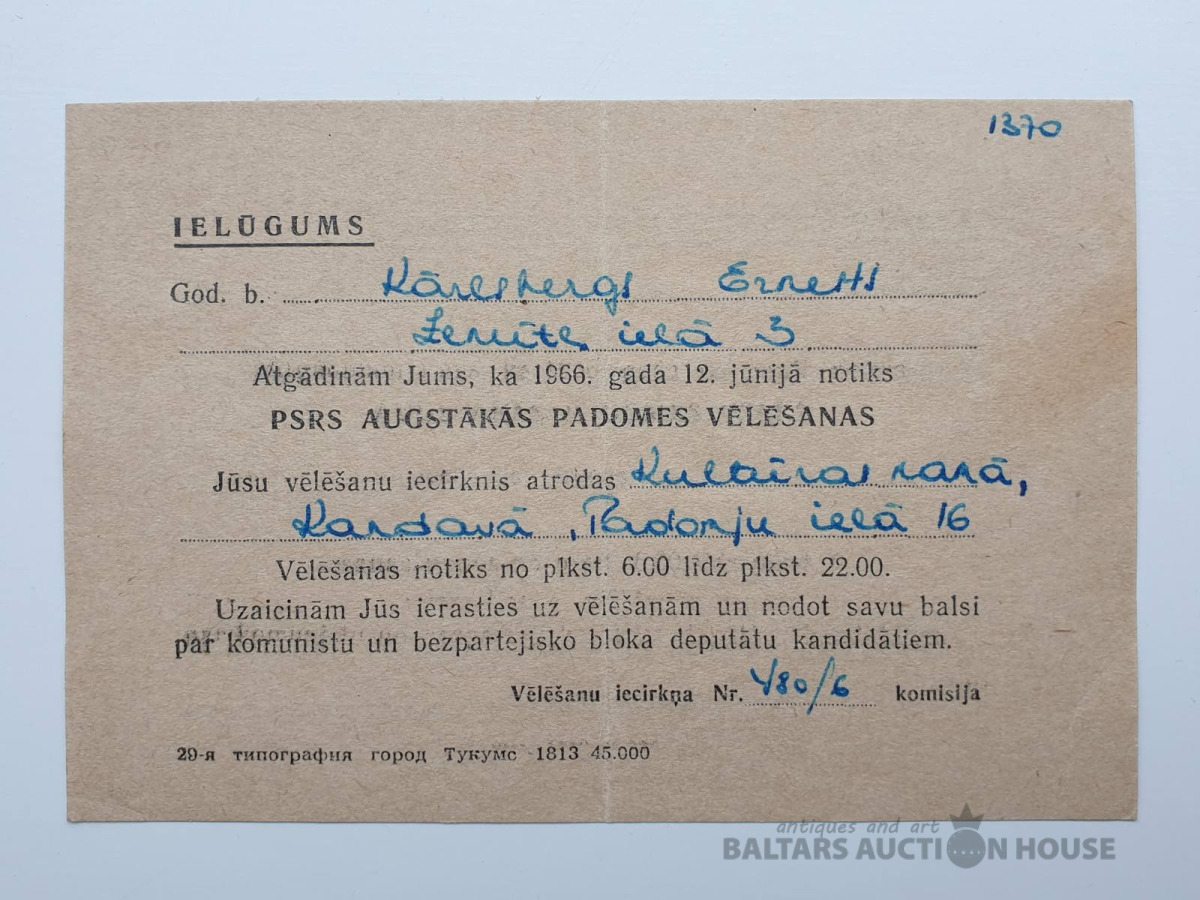 1370
IELŪGUMS
God. b. Kārlsbergs Ernests
ielā 3
Atgādinām Jums, ka 1966. gada 12. jūnijā notiks
PSRS AUGSTĀKĀS PADOMES VĒLĒŠANAS
Jūsu vēlēšanu iecirknis atrodas Kultūras namā,
Kandavā, Padomju ielā 16
Vēlēšanas notiks no plkst. 6.00 līdz plkst. 22.00.
Uzaicinām Jūs ierasties uz vēlēšanām un nodot savu balsi
par komunistu un bezpartejisko bloka deputātu kandidātiem.
Vēlēšanu iecirkņa Nr. 480/6 komisija
29-я типография город Тукумс 1813 45.000
antiques and art
BALTARS AUCTION HOUSE